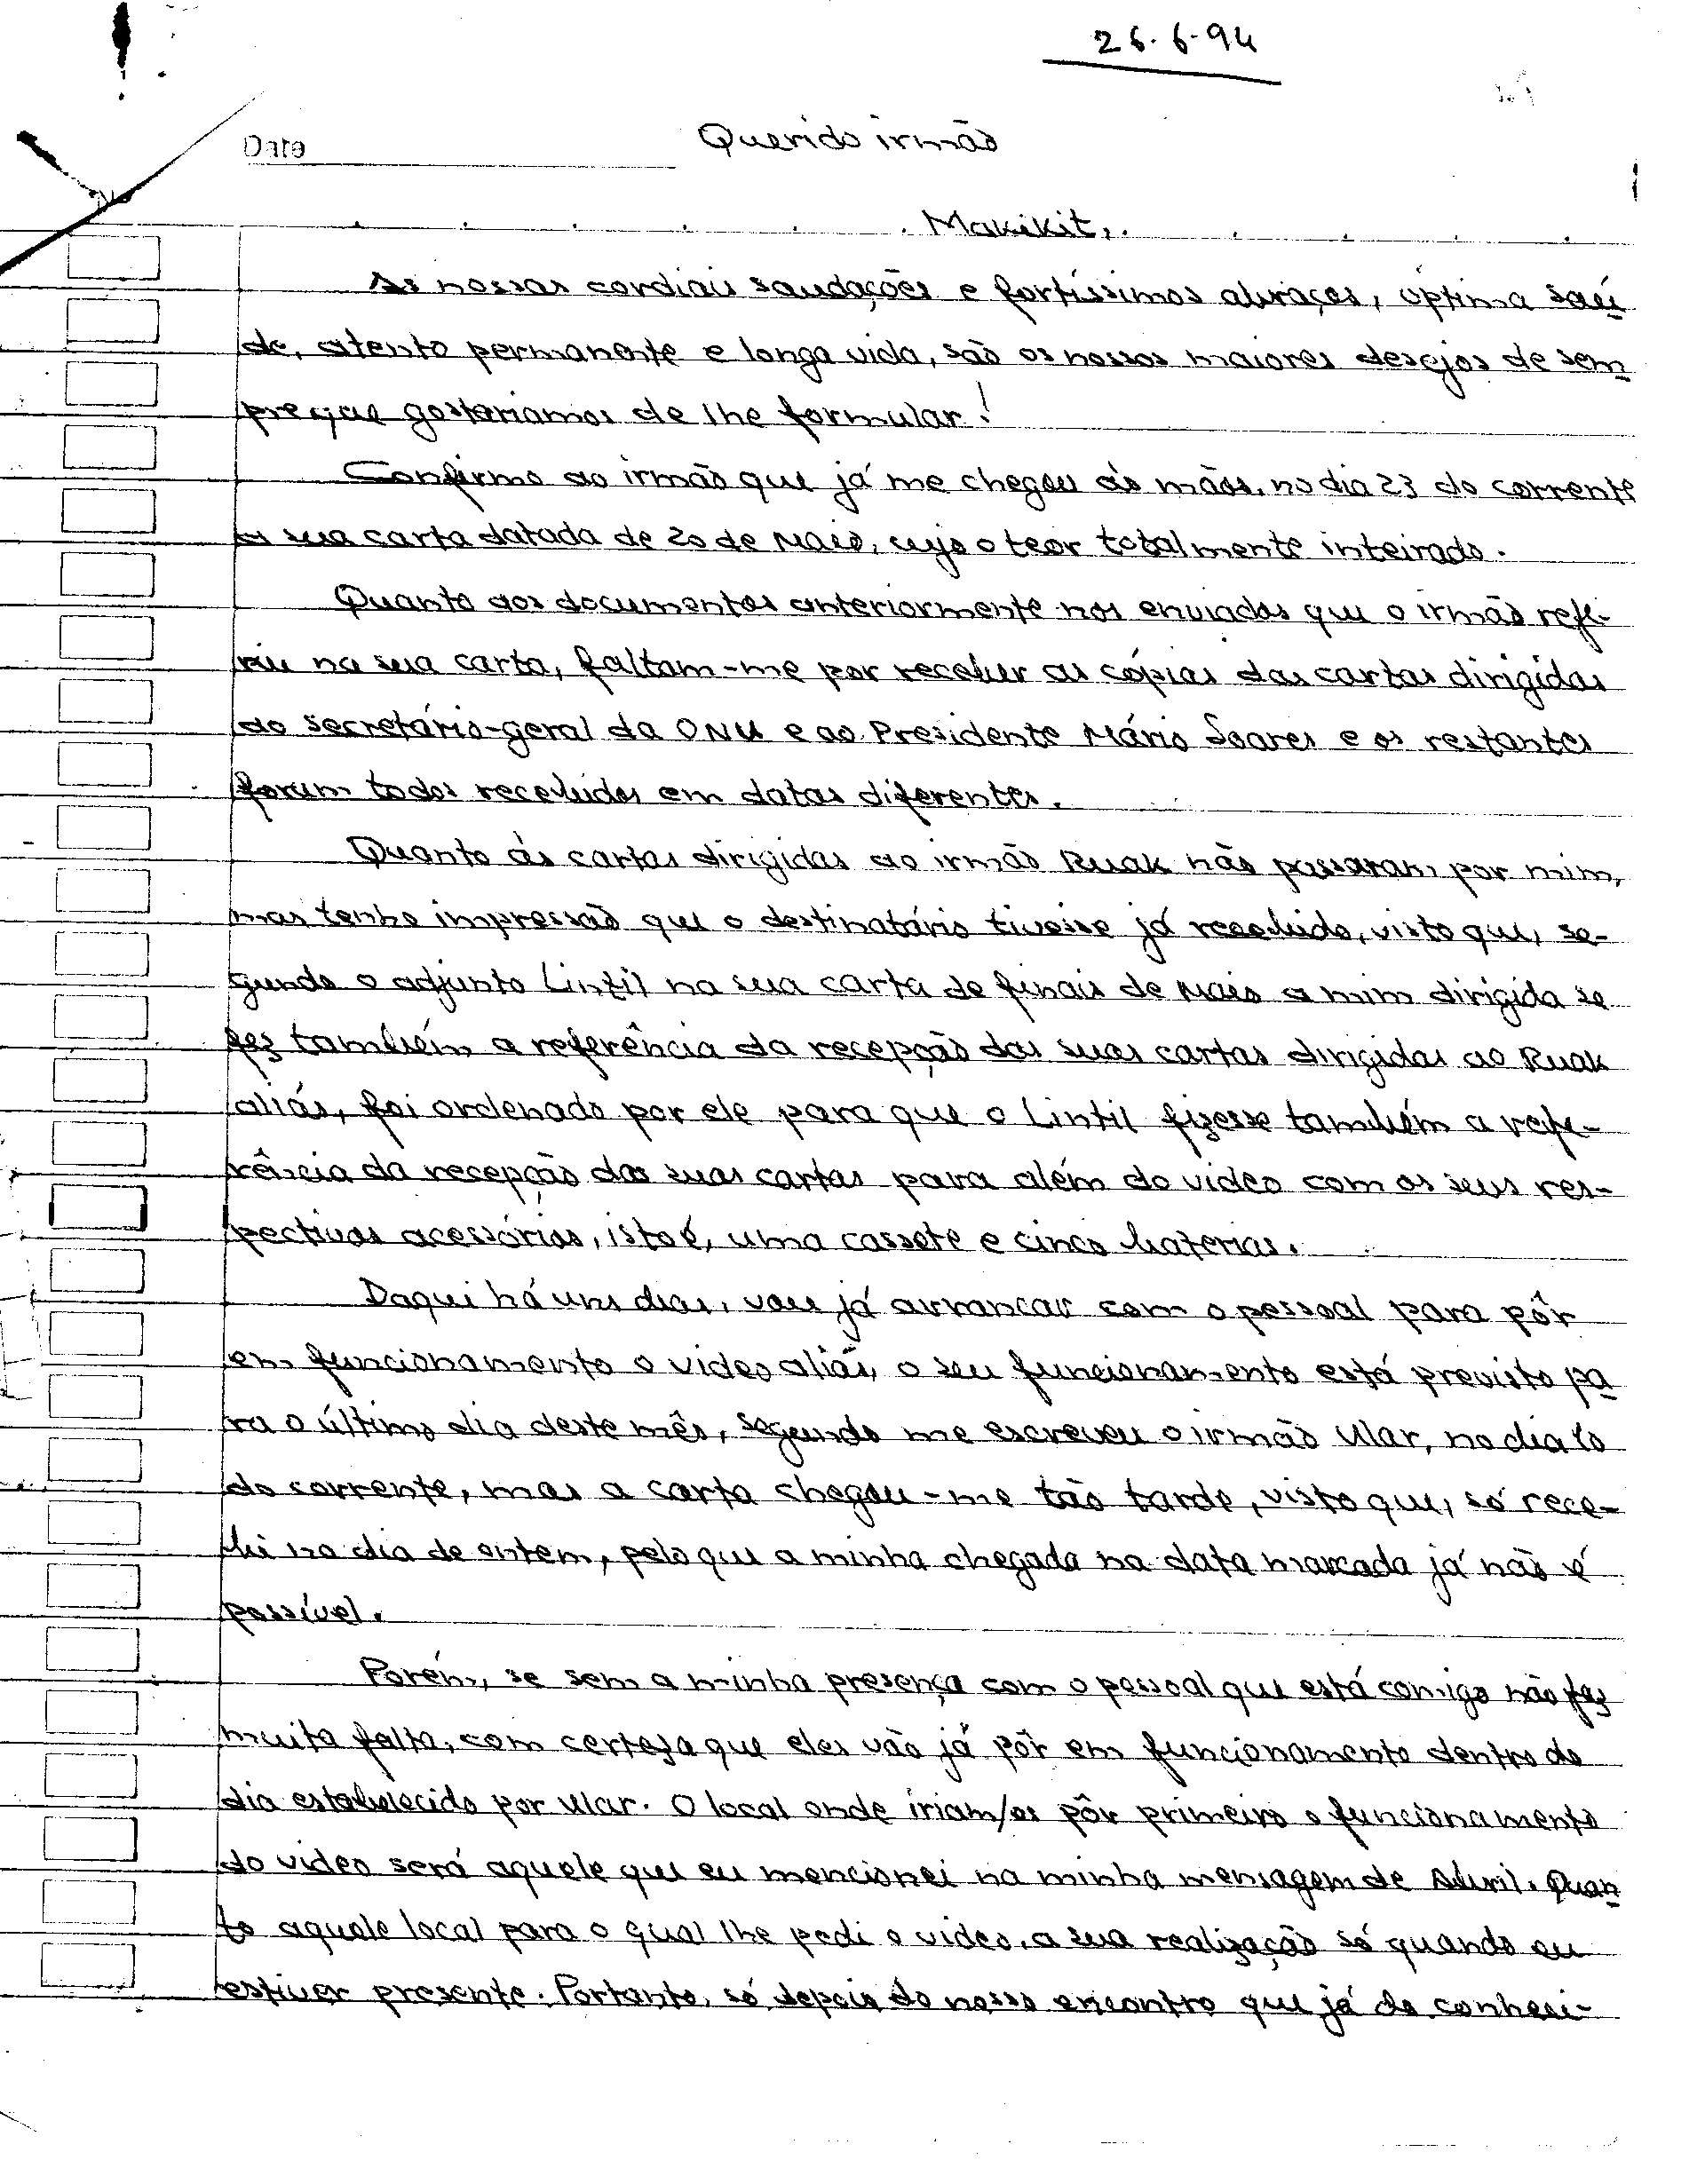 26.6.94
Date
Querido irmão
No
Makikit,
As nossas cordiais saudações e fortíssimos abraços, óptima saú
de, atento permanente e longa vida, são os nossos maiores desejos de sem
pre que gostariamos de lhe formular!
Confirmo ao irmão que já me chegou às mãos, no dia 23 do corrente
a sua carta datada de 20 de Maio, cujo o teor totalmente inteirado.
Quanto aos documentos anteriormente nos enviados que o irmão refe-
riu na sua carta, faltam-me por receber as cópias das cartas dirigidas
ao secretário-geral da ONU e ao Presidente Mário Soares e os restantes
foram todos recebidos em datas diferentes.
Quanto às cartas dirigidas ao irmão Ruak não passaram por mim,
mas tenho impressão que o destinatário tivesse já recebido, visto que, se-
gundo o adjunto Lintil na sua carta de finais de Maio a mim dirigida se
fez também a referência da recepção das suas cartas dirigidas ao Ruak
aliás, foi ordenado por ele para que o Lintil fizesse também a refe-
rência da recepção das suas cartas para além do video com os seus res-
pectivos acessórios, isto é, uma cassete e cinco baterias.
Daqui há uns dias, vou já arrancar com o pessoal para pôr
em funcionamento o video aliás, o seu funcionamento está previsto pa
ra o último dia deste mês, segundo me escreveu o irmão Ular, no dia 10
do corrente, mas a carta chegou-me tão tarde, visto que, só rece-
bi no dia de ontem, pelo que a minha chegada na data marcada já não é
possível.
Porém, se sem a minha presença com o pessoal que está comigo não faz
muita falta, com certeza que eles vão já pôr em funcionamento dentro do
dia estabelecido por Ular. O local onde iriam/os pôr primeiro o funcionamento
do video será aquele que eu mencionei na minha mensagem de Abril. Quan
to aquele local para o qual lhe pedi o video, a sua realização só quando eu
estiver presente. Portanto, só depois do nosso encontro que já de conheci-